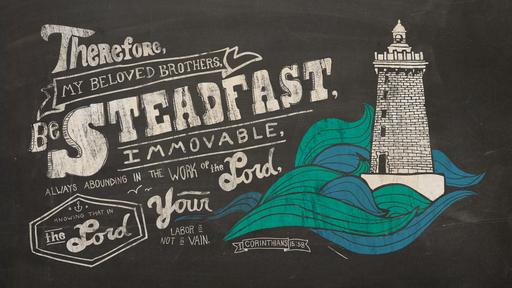 Therefore,
MY BELOVED BROTHERS,
Be STEADFAST,
IMMOVABLE,
ALWAYS ABOUNDING IN THE WORK of the Lord,
KNOWING THAT IN
the Lord
Your
LABOR IS
NOT IN VAIN.
1 CORINTHIANS 15:58